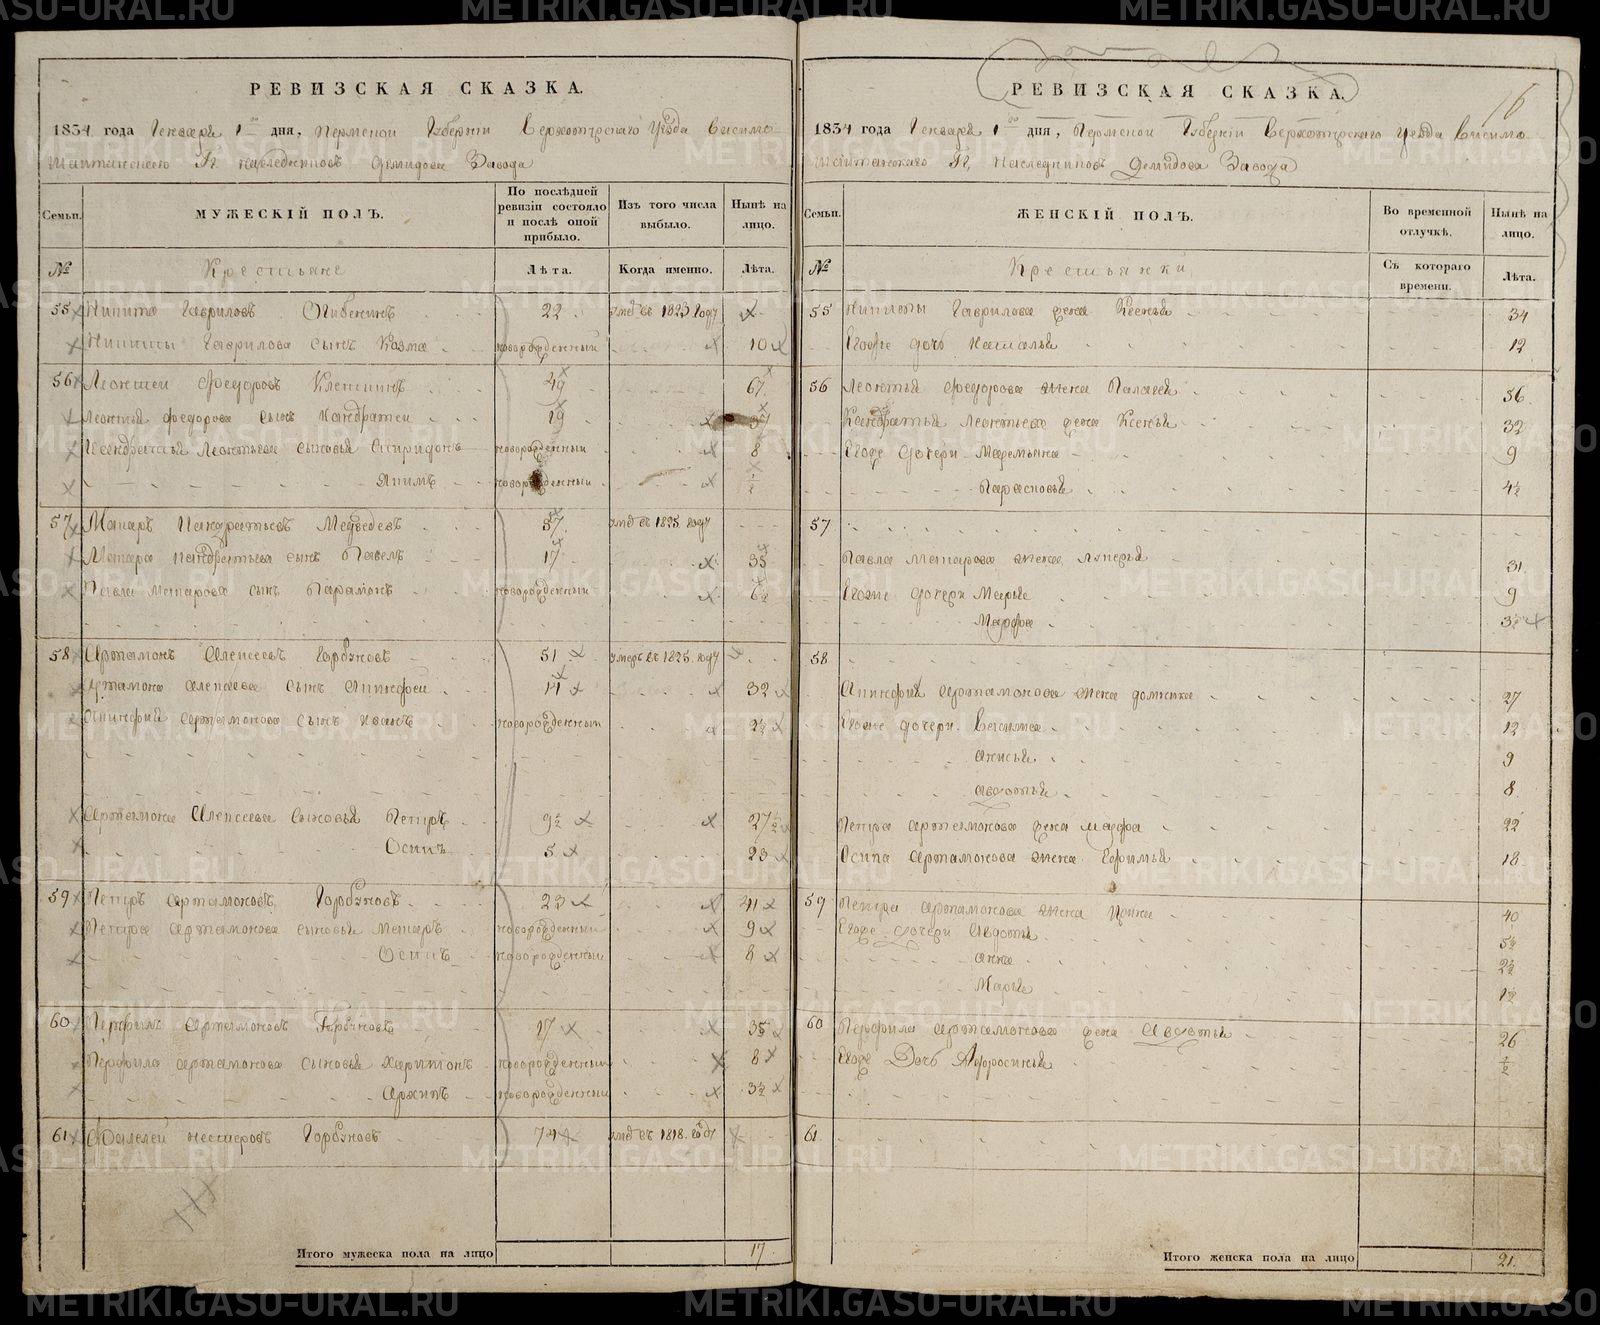 РЕВИЗСКАЯ СКАЗКА.
1834 года Генваря 1 дня, Пермской Губернии Верхотурскаго Уезда Висимо
Шайтанскаго Гг. наследниковъ Демидова Завода
Семьи.
МУЖЕСКІЙ ПОЛЪ.
По послѣдней ревизіи состояло и послѣ оной прибыло.
Изъ того числа выбыло.
Нынѣ на лицо.
№
Крестьяне
Лѣта.
Когда именно.
Лѣта.
55 Никита Гавриловъ 22 умер въ 1823 году
Никиты Гаврилова сынъ Козма новорожденный 10
56 Леонтей Федоровъ 49 67
Леонтья Федорова сынъ Кондратей 19 37
Кондратья Леонтьева сыновья Спиридонъ новорожденный 8
Акимъ новорожденный ½
57 Макаръ Панкратьевъ Медведевъ 57 умер въ 1825 году
Макара Панкратьева сынъ Павелъ 17 35
Павла Макарова сынъ Парамонъ новорожденный 6½
58 Артамонъ Алексеевъ Горбуновъ 51 умеръ въ 1825 году
Артамона Алексеева сынъ Анинфей 14 32
Анинфия Артамонова сынъ Иванъ новорожденный 2½
Артамона Алексеева сыновья Петръ 9½ 27½
Осипъ 5 23
59 Петръ Артамоновъ Горбуновъ 23 41
Петра Артамонова сыновья Макаръ новорожденный 9
Осипъ новорожденный 8
60 Перфилъ Артамоновъ Горбуновъ 17 35
Перфила Артамонова сыновья Харитонъ новорожденный 8
Архипъ новорожденный 3½
61 Фалелей Нестеровъ Горбуновъ 74 умер въ 1818 году
Итого мужеска пола на лицо 17
16
РЕВИЗСКАЯ СКАЗКА.
1834 года Генваря 1 дня, Пермской Губернии Верхотурскаго Уезда Висимо
Шайтанскаго Гг. Наследниковъ Демидова Завода
Семьи.
ЖЕНСКІЙ ПОЛЪ.
Во временной отлучкѣ.
Нынѣ на лицо.
№
Крестьянки
Съ котораго времени.
Лѣта.
55 Никиты Гаврилова жена Ксенья 34
Егоже дочь Наталья 12
56 Леонтья Федорова жена Палагея 56
Кондратья Леонтьева жена Ксенья 32
Егоже дочери Маремьяна 9
Парасковья 4½
57
Павла Макарова жена Лукерья 31
Егоже дочери Марья 9
Марфа 3½
58
Анинфия Артамонова жена Домника 27
Егоже дочери Василиса 12
Анисья 9
Авдотья 8
Петра Артамонова жена Марфа 22
Осипа Артамонова жена Ефимья 18
59 Петра Артамонова жена Ирина 40
Егоже дочери Авдотья 5½
Анна 2½
Марья 1½
60 Перфила Артамонова жена Авдотья 26
Егоже Дочь Афросинья ½
61.
Итого женска пола на лицо 21.
METRIKI.GASO-URAL.RU